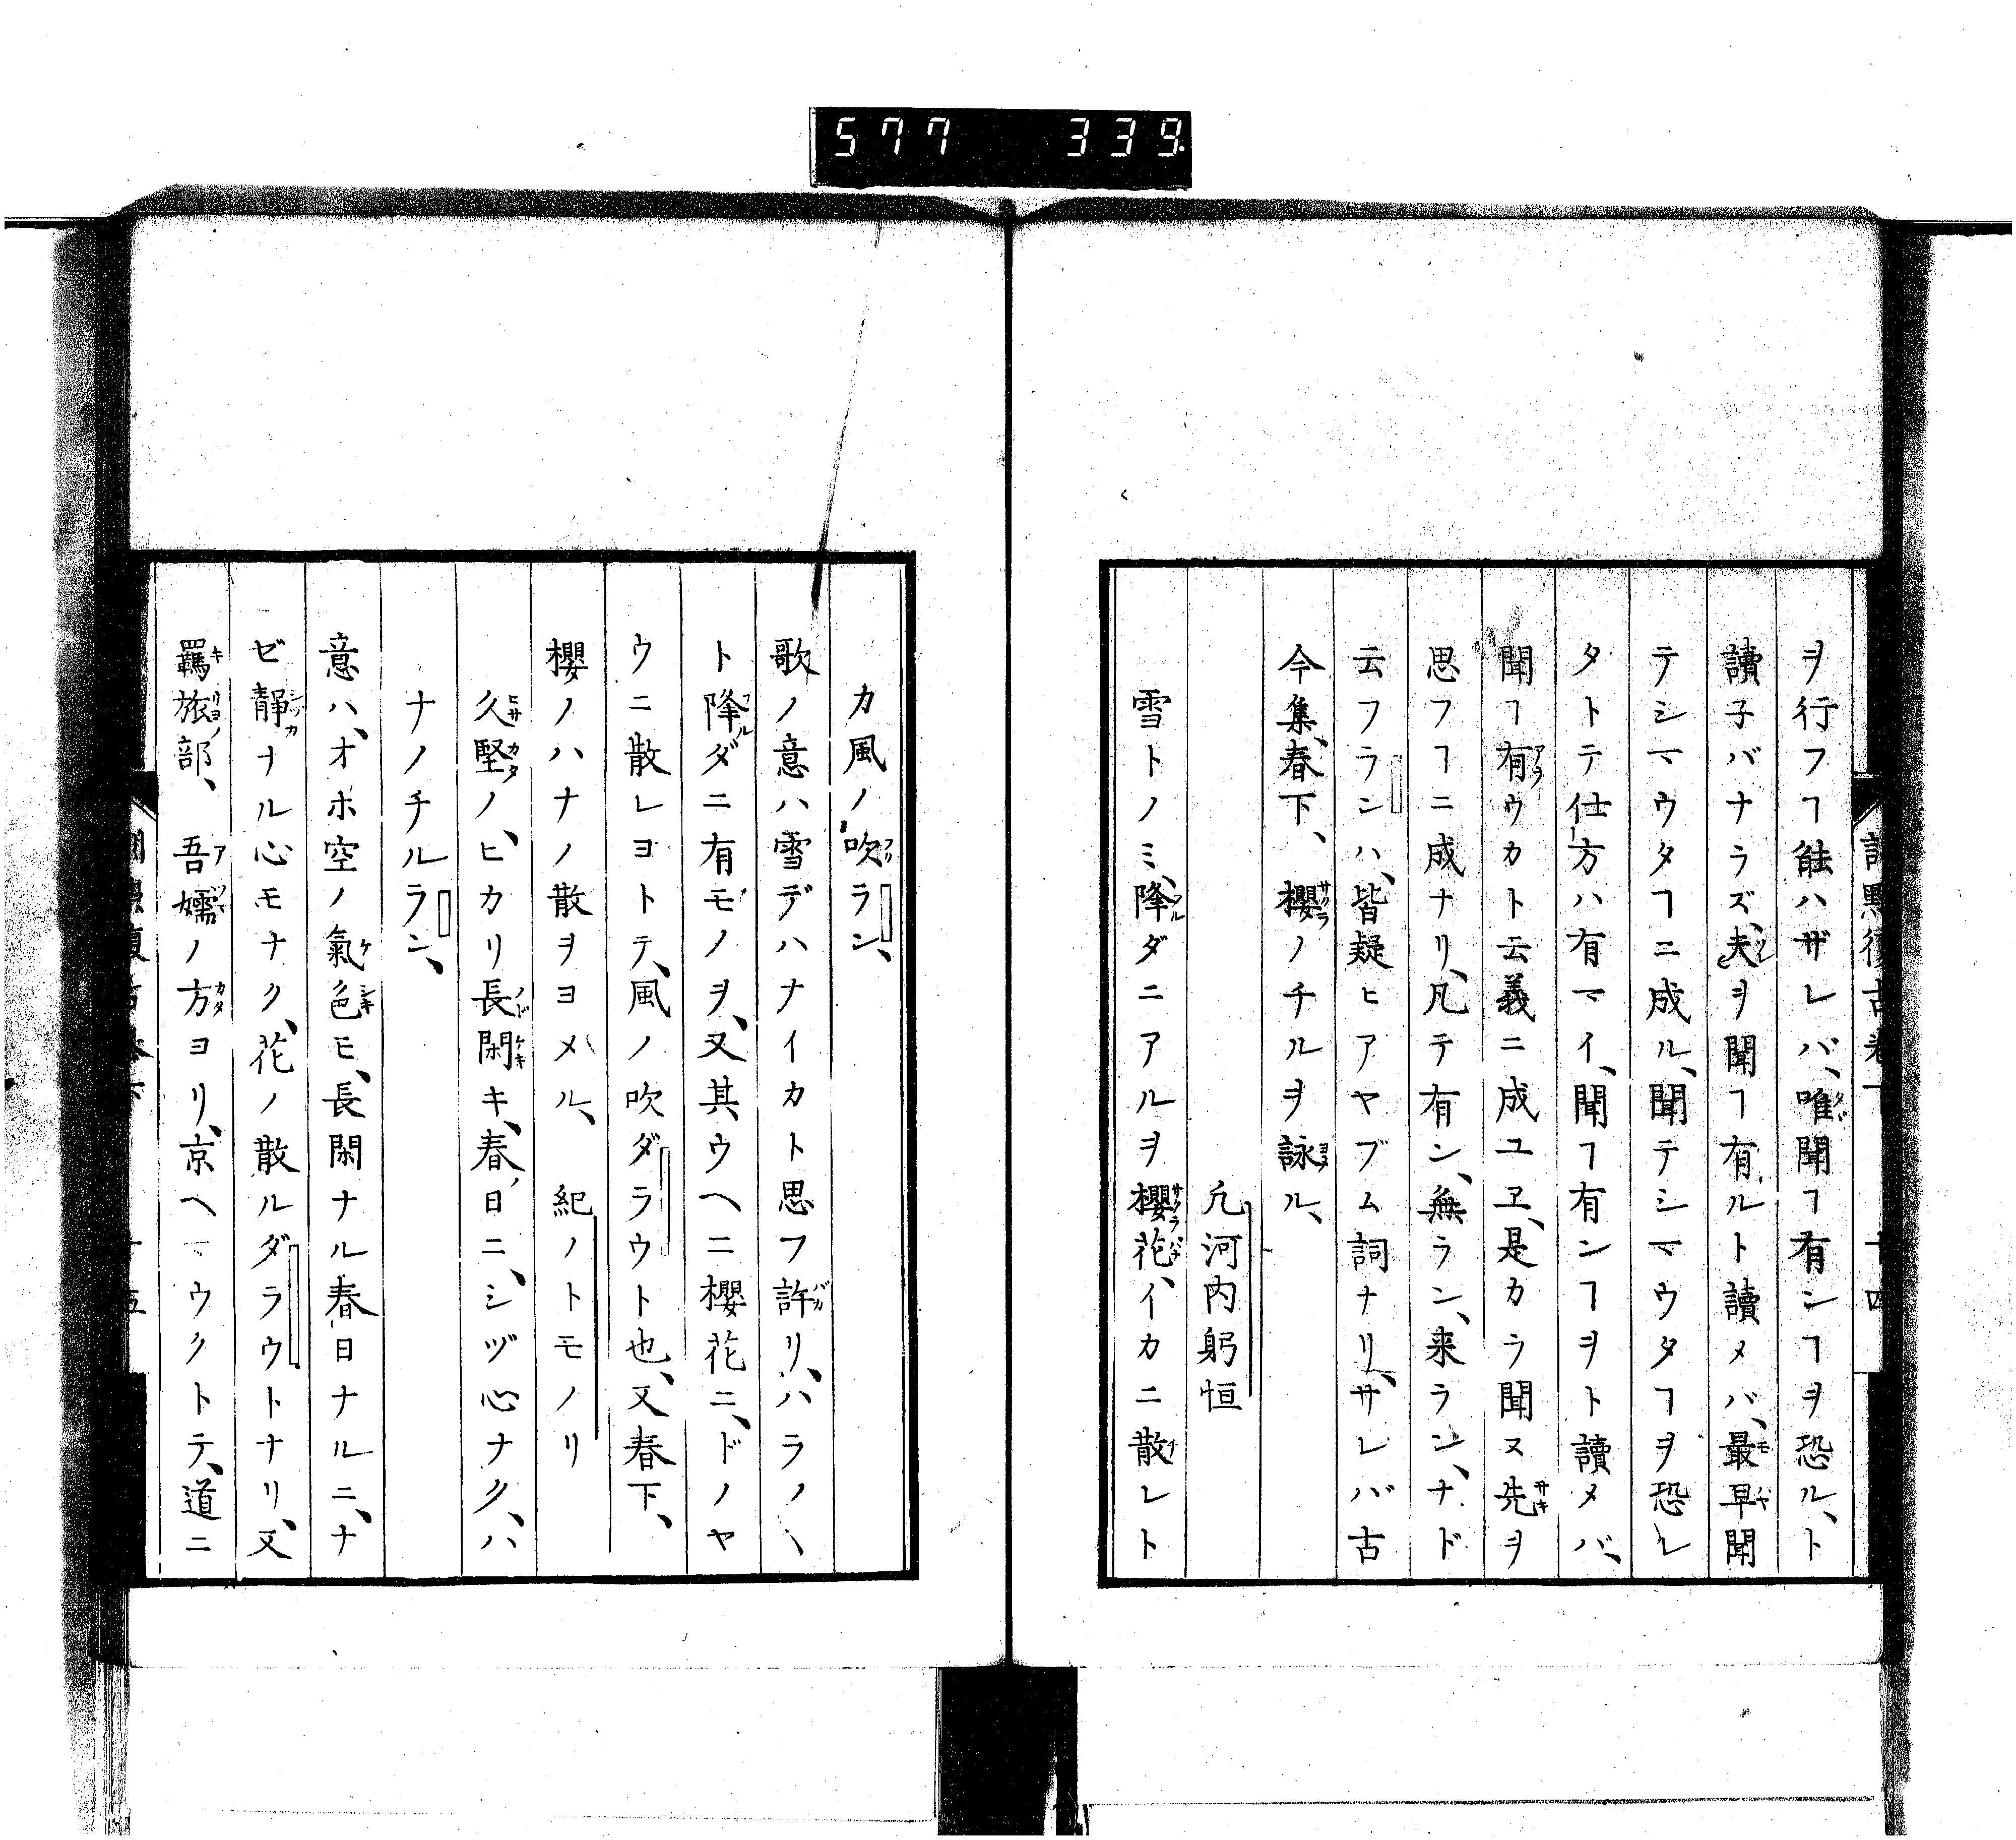 577 339
ヲ行フヿ能ハザレバ、唯聞ヿ有ンヿヲ恐ル、ト
讀子バナラズ、夫ヲ聞ヿ有ルト讀メバ、最早聞
テシマウタヿニ成ル、聞テシマウタヿヲ恐レ
タトテ仕方ハ有マイ、聞ヿ有ンヿヲト讀メバ、
聞ヿ有ウカト云義ニ成ユヱ、是カラ聞ヌ先ヲ
思フヿニ成ナリ、凡テ有ン、無ラン、来ラン、ナド
云フランハ、皆疑ヒアヤブム詞ナリ、サレバ古
今集、春下、櫻ノチルヲ詠ル、
凢河内躬恒
雪トノミ、降ダニアルヲ櫻花、イカニ散レト
カ風ノ吹ラン、
歌ノ意ハ雪デハナイカト思フ許リ、ハラノ〵
ト降ダニ有モノヲ、又其ウヘニ櫻花ニ、ドノヤ
ウニ散レヨトテ、風ノ吹ダラウト也、又春下、
櫻ノハナノ散ヲヨメル、紀ノトモノリ
久堅ノ、ヒカリ長閑キ、春日ニ、シヅ心ナク、ハ
ナノチルラン、
意ハ、オホ空ノ氣色モ、長閑ナル春日ナルニ、ナ
ゼ靜ナル心モナク、花ノ散ルダラウトナリ、又
羈旅部、吾嬬ノ方ヨリ、京ヘマウクトテ、道ニ